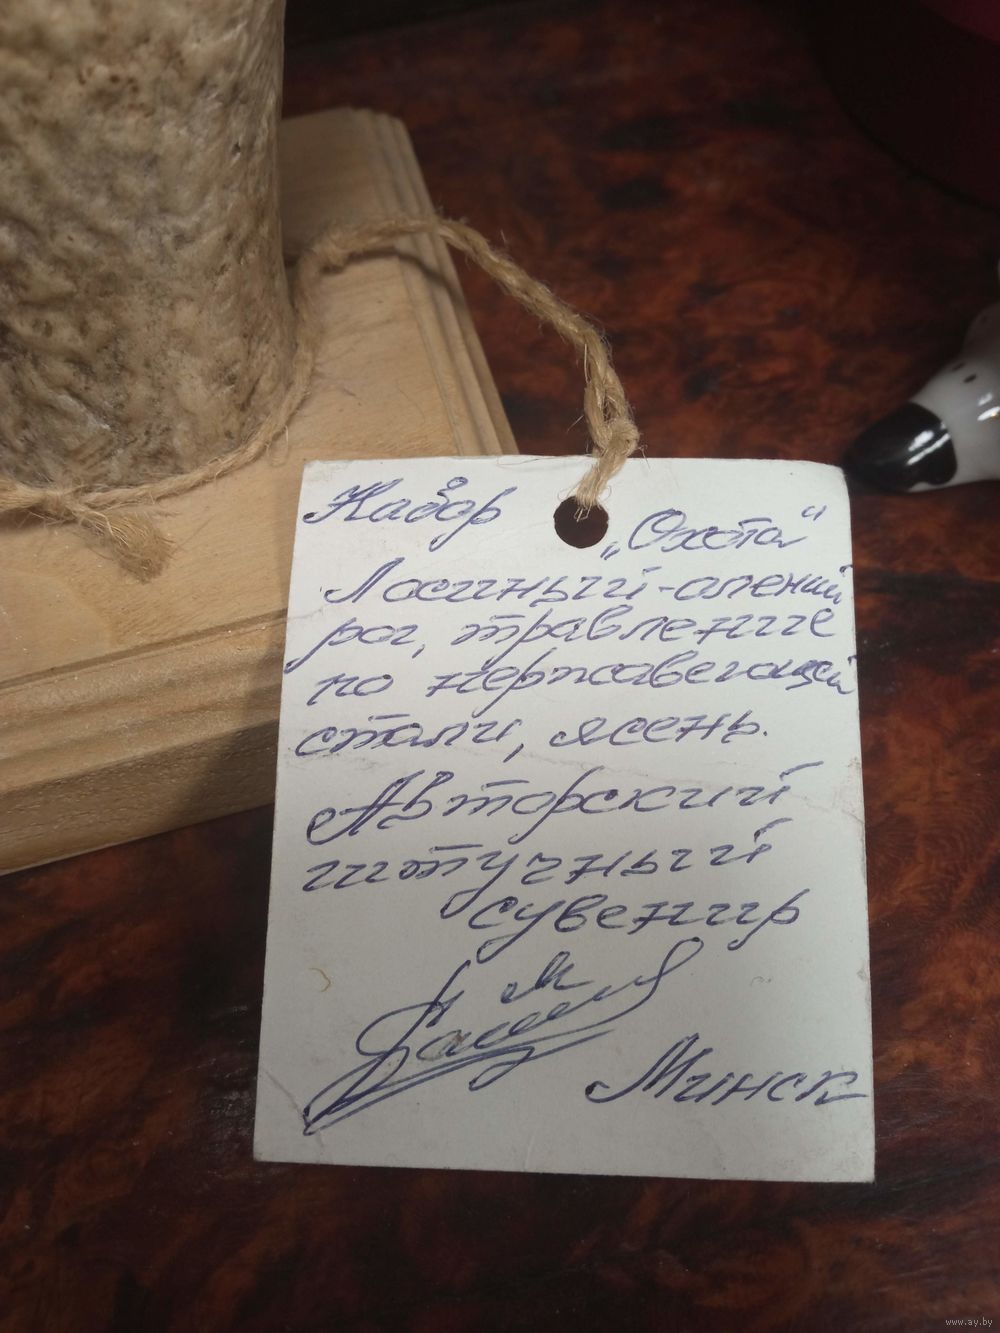 Набор
„Охота“
Лосиный-олений
рог, травление
по нержавеющей
стали, ясень.
Авторский
штучный
сувенир
Минск
www.ay.by